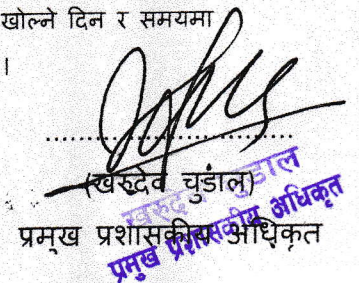 खोल्ने दिन र समयमा
।
..............................
(खरुदेव चुडाल)
प्रमुख प्रशासकीय अधिकृत
खरुदेव चुडाल
प्रमुख प्रशासकीय अधिकृत